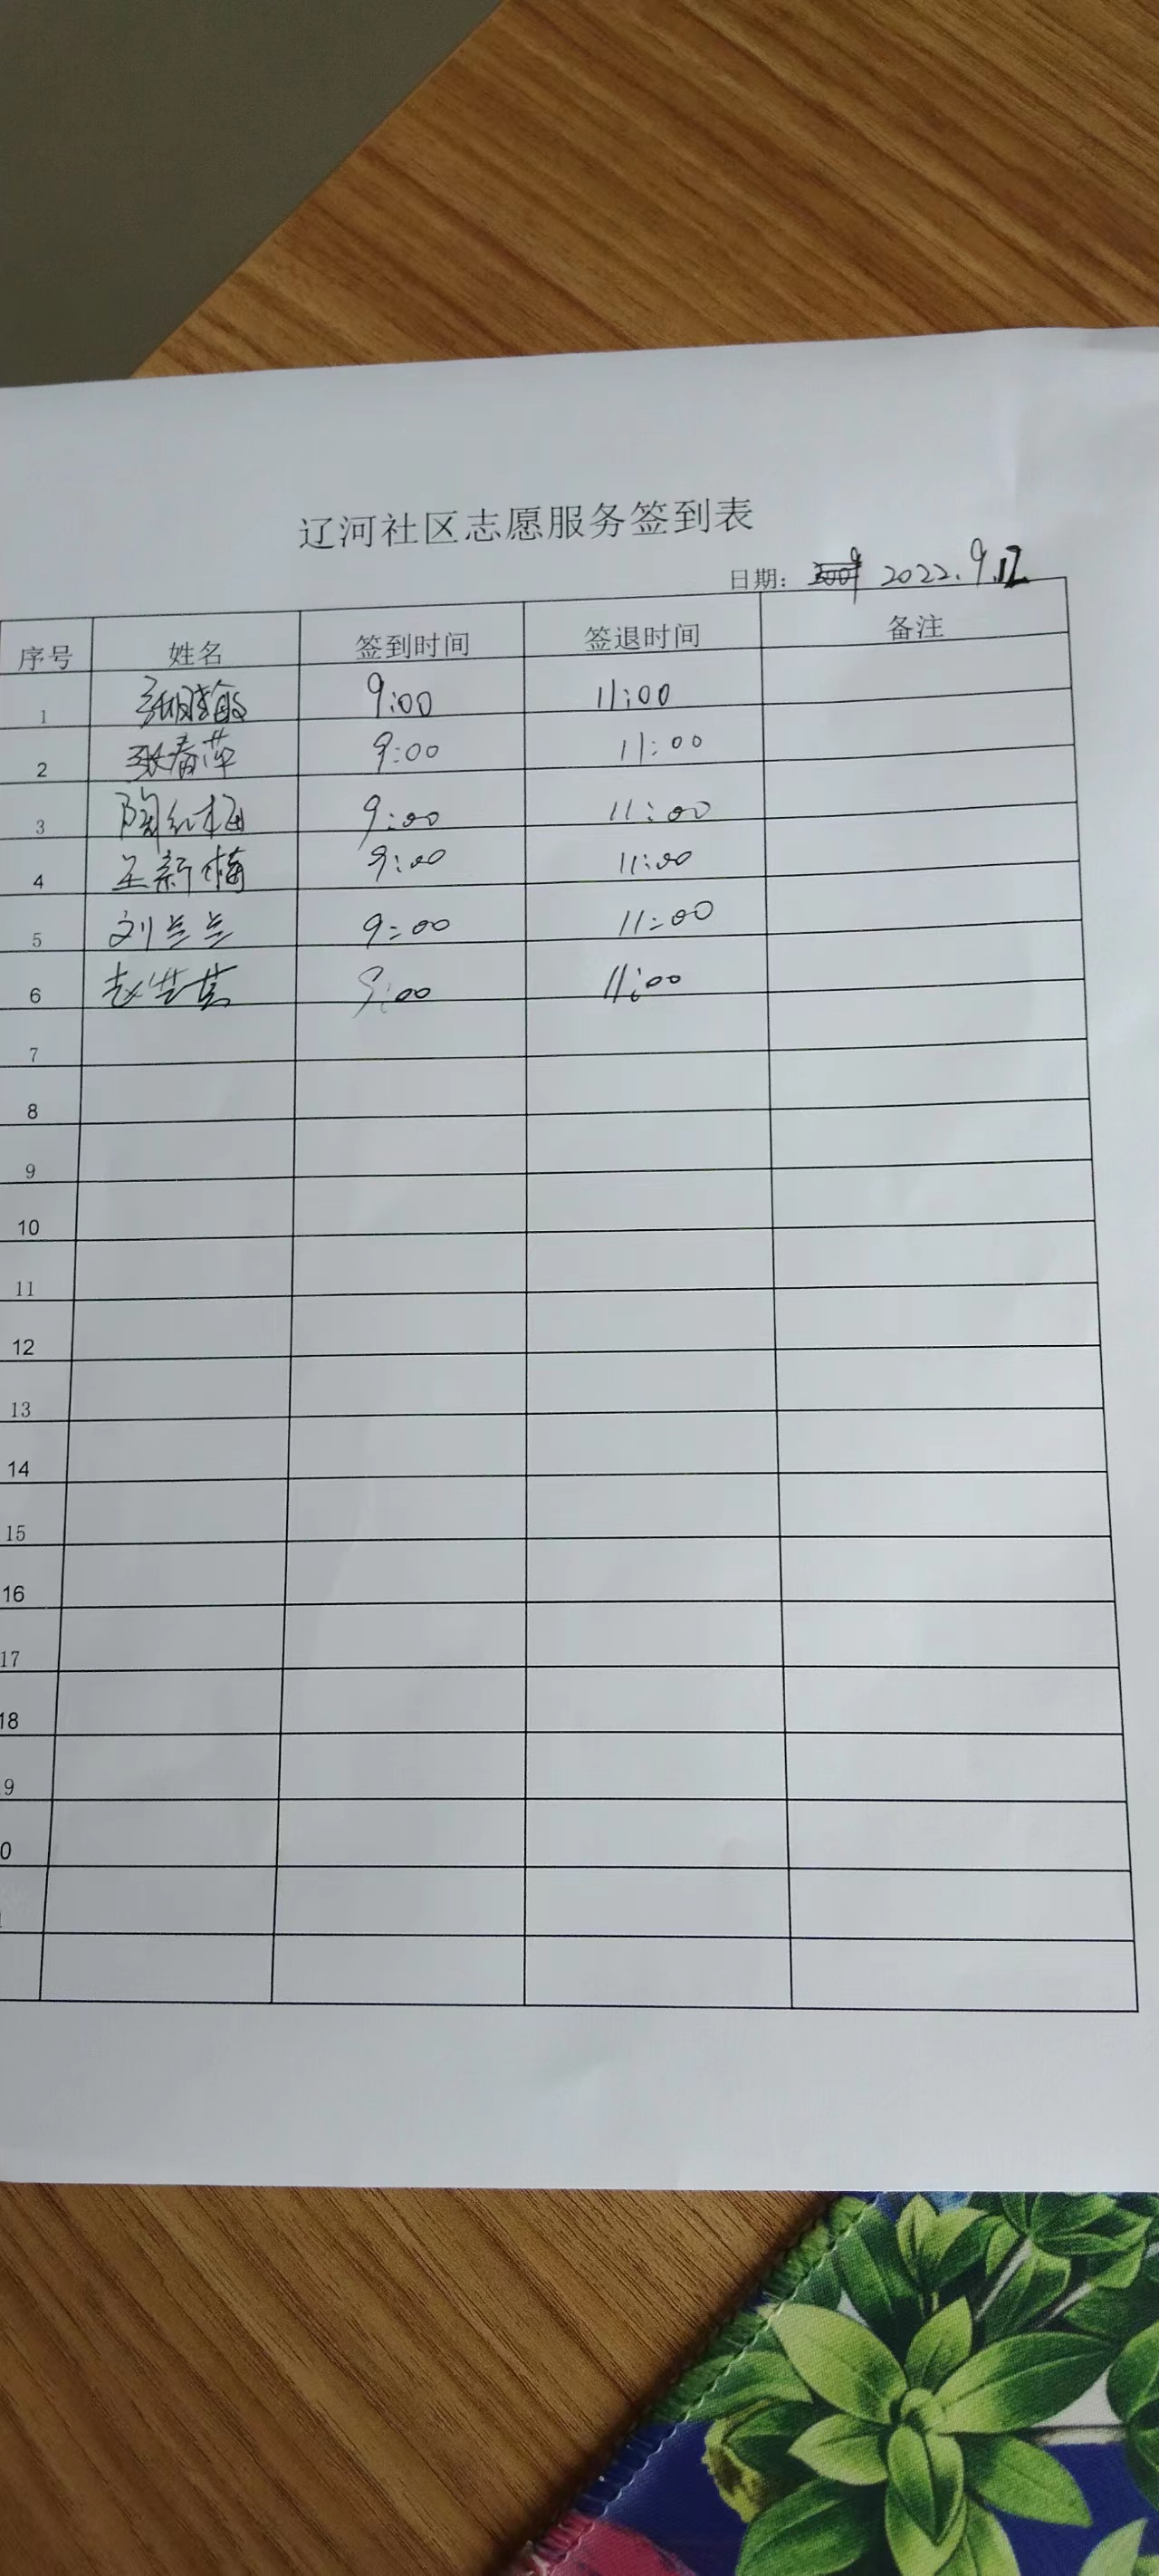 辽河社区志愿服务签到表
日期: 2022.9.12
序号 姓名 签到时间 签退时间 备注
1 9:00 11:00
2 张春萍 9:00 11:00
3 陶红梅 9:00 11:00
4 王新梅 9:00 11:00
5 刘兰兰 9:00 11:00
6 赵 9:00 11:00
7
8
9
10
11
12
13
14
15
16
17
18
9
0